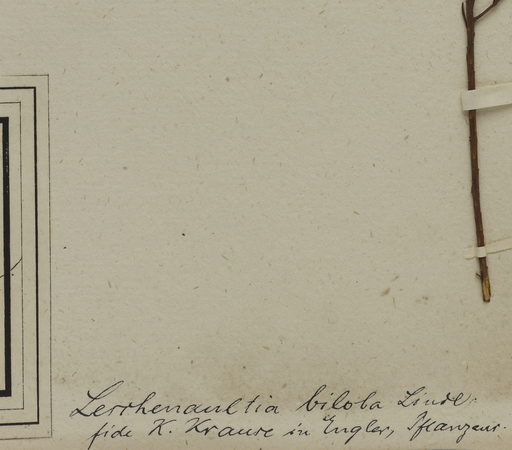 Leschenaultia biloba Lindl.
fide K. Krause in Engler, Pflanzenr.